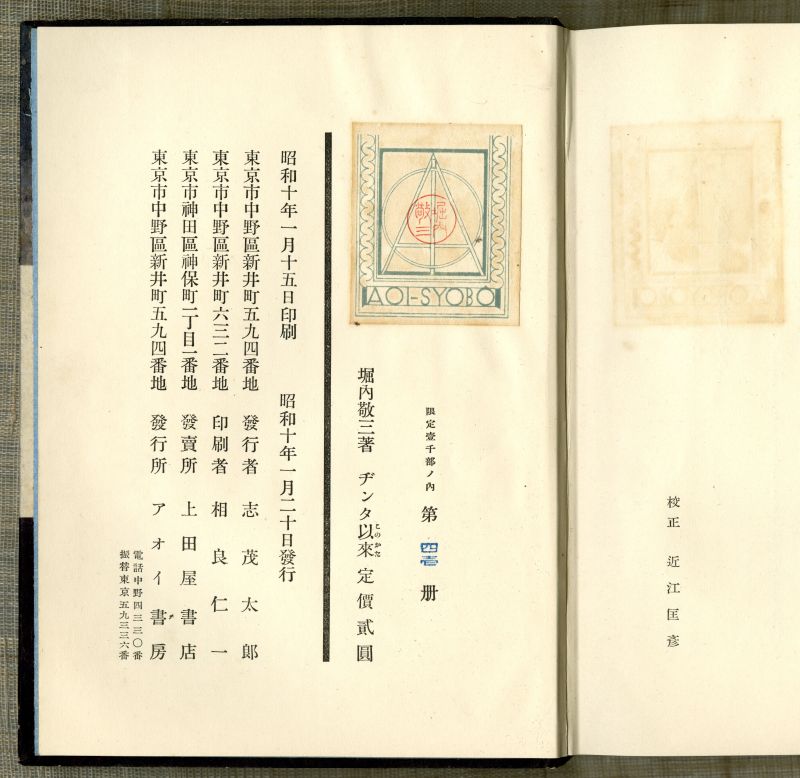 校正　近江匡彦
限定壹千部ノ內　第　四壹　册
堀內敬三著　ヂンタ以來　定價貳圓
このかた
AOI-SYOBŌ
堀内敬三
昭和十年一月十五日印刷　昭和十年一月二十日發行
東京市中野區新井町五九四番地　發行者　志茂太郎
東京市中野區新井町六三二番地　印刷者　相良仁一
東京市神田區神保町一丁目一番地　發賣所　上田屋書店
東京市中野區新井町五九四番地　發行所　アオイ書房
電話中野四三三〇番
振替東京五九三三六番